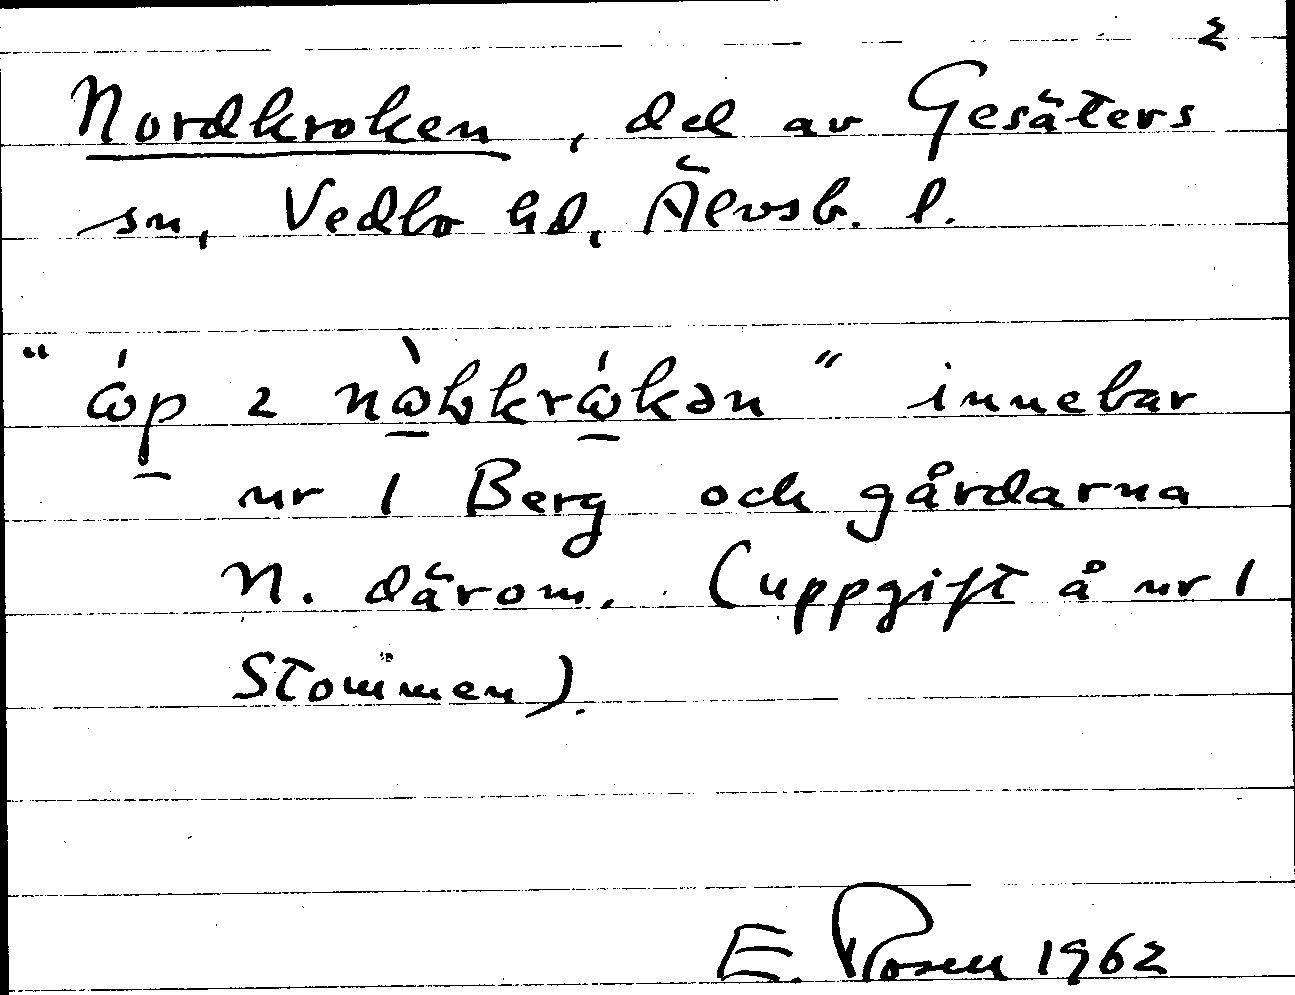 2
Nordkroken, del av Gesäters
sn, Vedbo hd, Älvsb. l.
"ώp 2 nὼƕkrώkən" innebar
nr 1 Berg och gårdarna
N. därom. (uppgift å nr 1
Stommen).
E. Rosen 1962